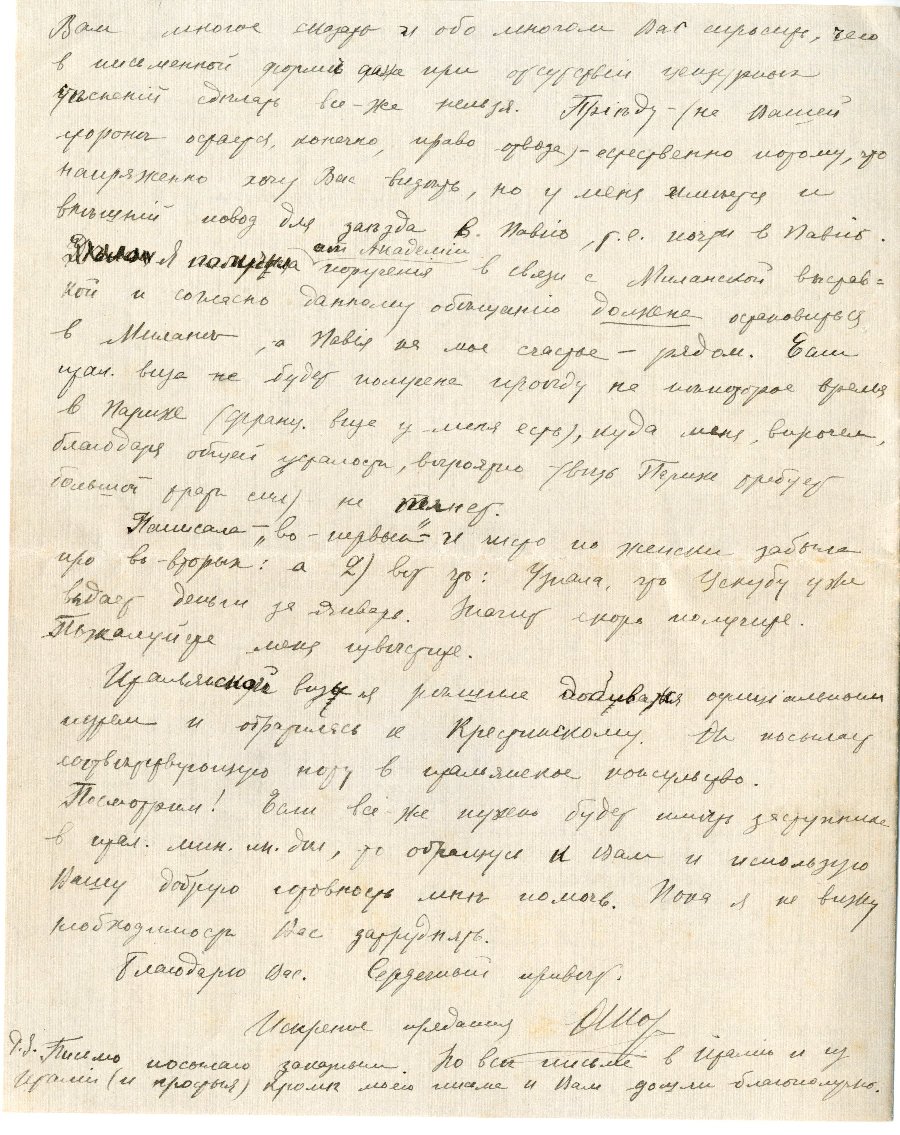 Вам многое сказать и обо многом Вас спросить, чего
в письменной форме даже при отсутствiи цензурных
стѣсненiй сдѣлать все-же нельзя. Прiѣду - (не Вашей
стороны остается, конечно, право отвода) - естественно потому, что
напряженно хочу Вас видѣть, но у меня имѣется и
внѣшнiй повод для заѣзда в Павiю, т.е. почти в Павiю.
Я получила от Академiи
порученiя в связи с Миланской выстав=
кой и согласно данному обѣщанiю должна остановиться
в Миланѣ, а Павiя на мое счастье - рядом. Если
итал. виза не будет получена проѣду на нѣкоторое время
в Париж (франц. виза у меня есть), куда меня, впрочем,
благодаря общей усталости, вѣроятно - (вѣдь Париж требует
большой траты сил) не тянет.
Написала - „во-первых" - и чисто по женски забыла
про во-вторых: а 2) вот что: Узнала, что Цекубу уже
выдает деньги за январь. Значит скоро получите.
Пожалуйста меня извѣстите.
Итальянской визы я рѣшила добиваться оффицiальным
путем и обратилась к Крестинскому. Он посылает
соотвѣтствующую ноту в итальянское консульство.
Посмотрим! Если все-же нужно будет имѣть заступника
в итал. мин. ин. дѣл, то обращусь к Вам и использую
Вашу добрую готовность мнѣ помочь. Пока я не вижу
необходимости Вас затруднять.
Благодарю Вас. Сердечный привѣт.
Искренне преданная
P.S. Письмо посылаю заказным. Но всѣ письма в Италiю и из
Италiи (и простыя) кромѣ моего письма к Вам дошли благополучно.